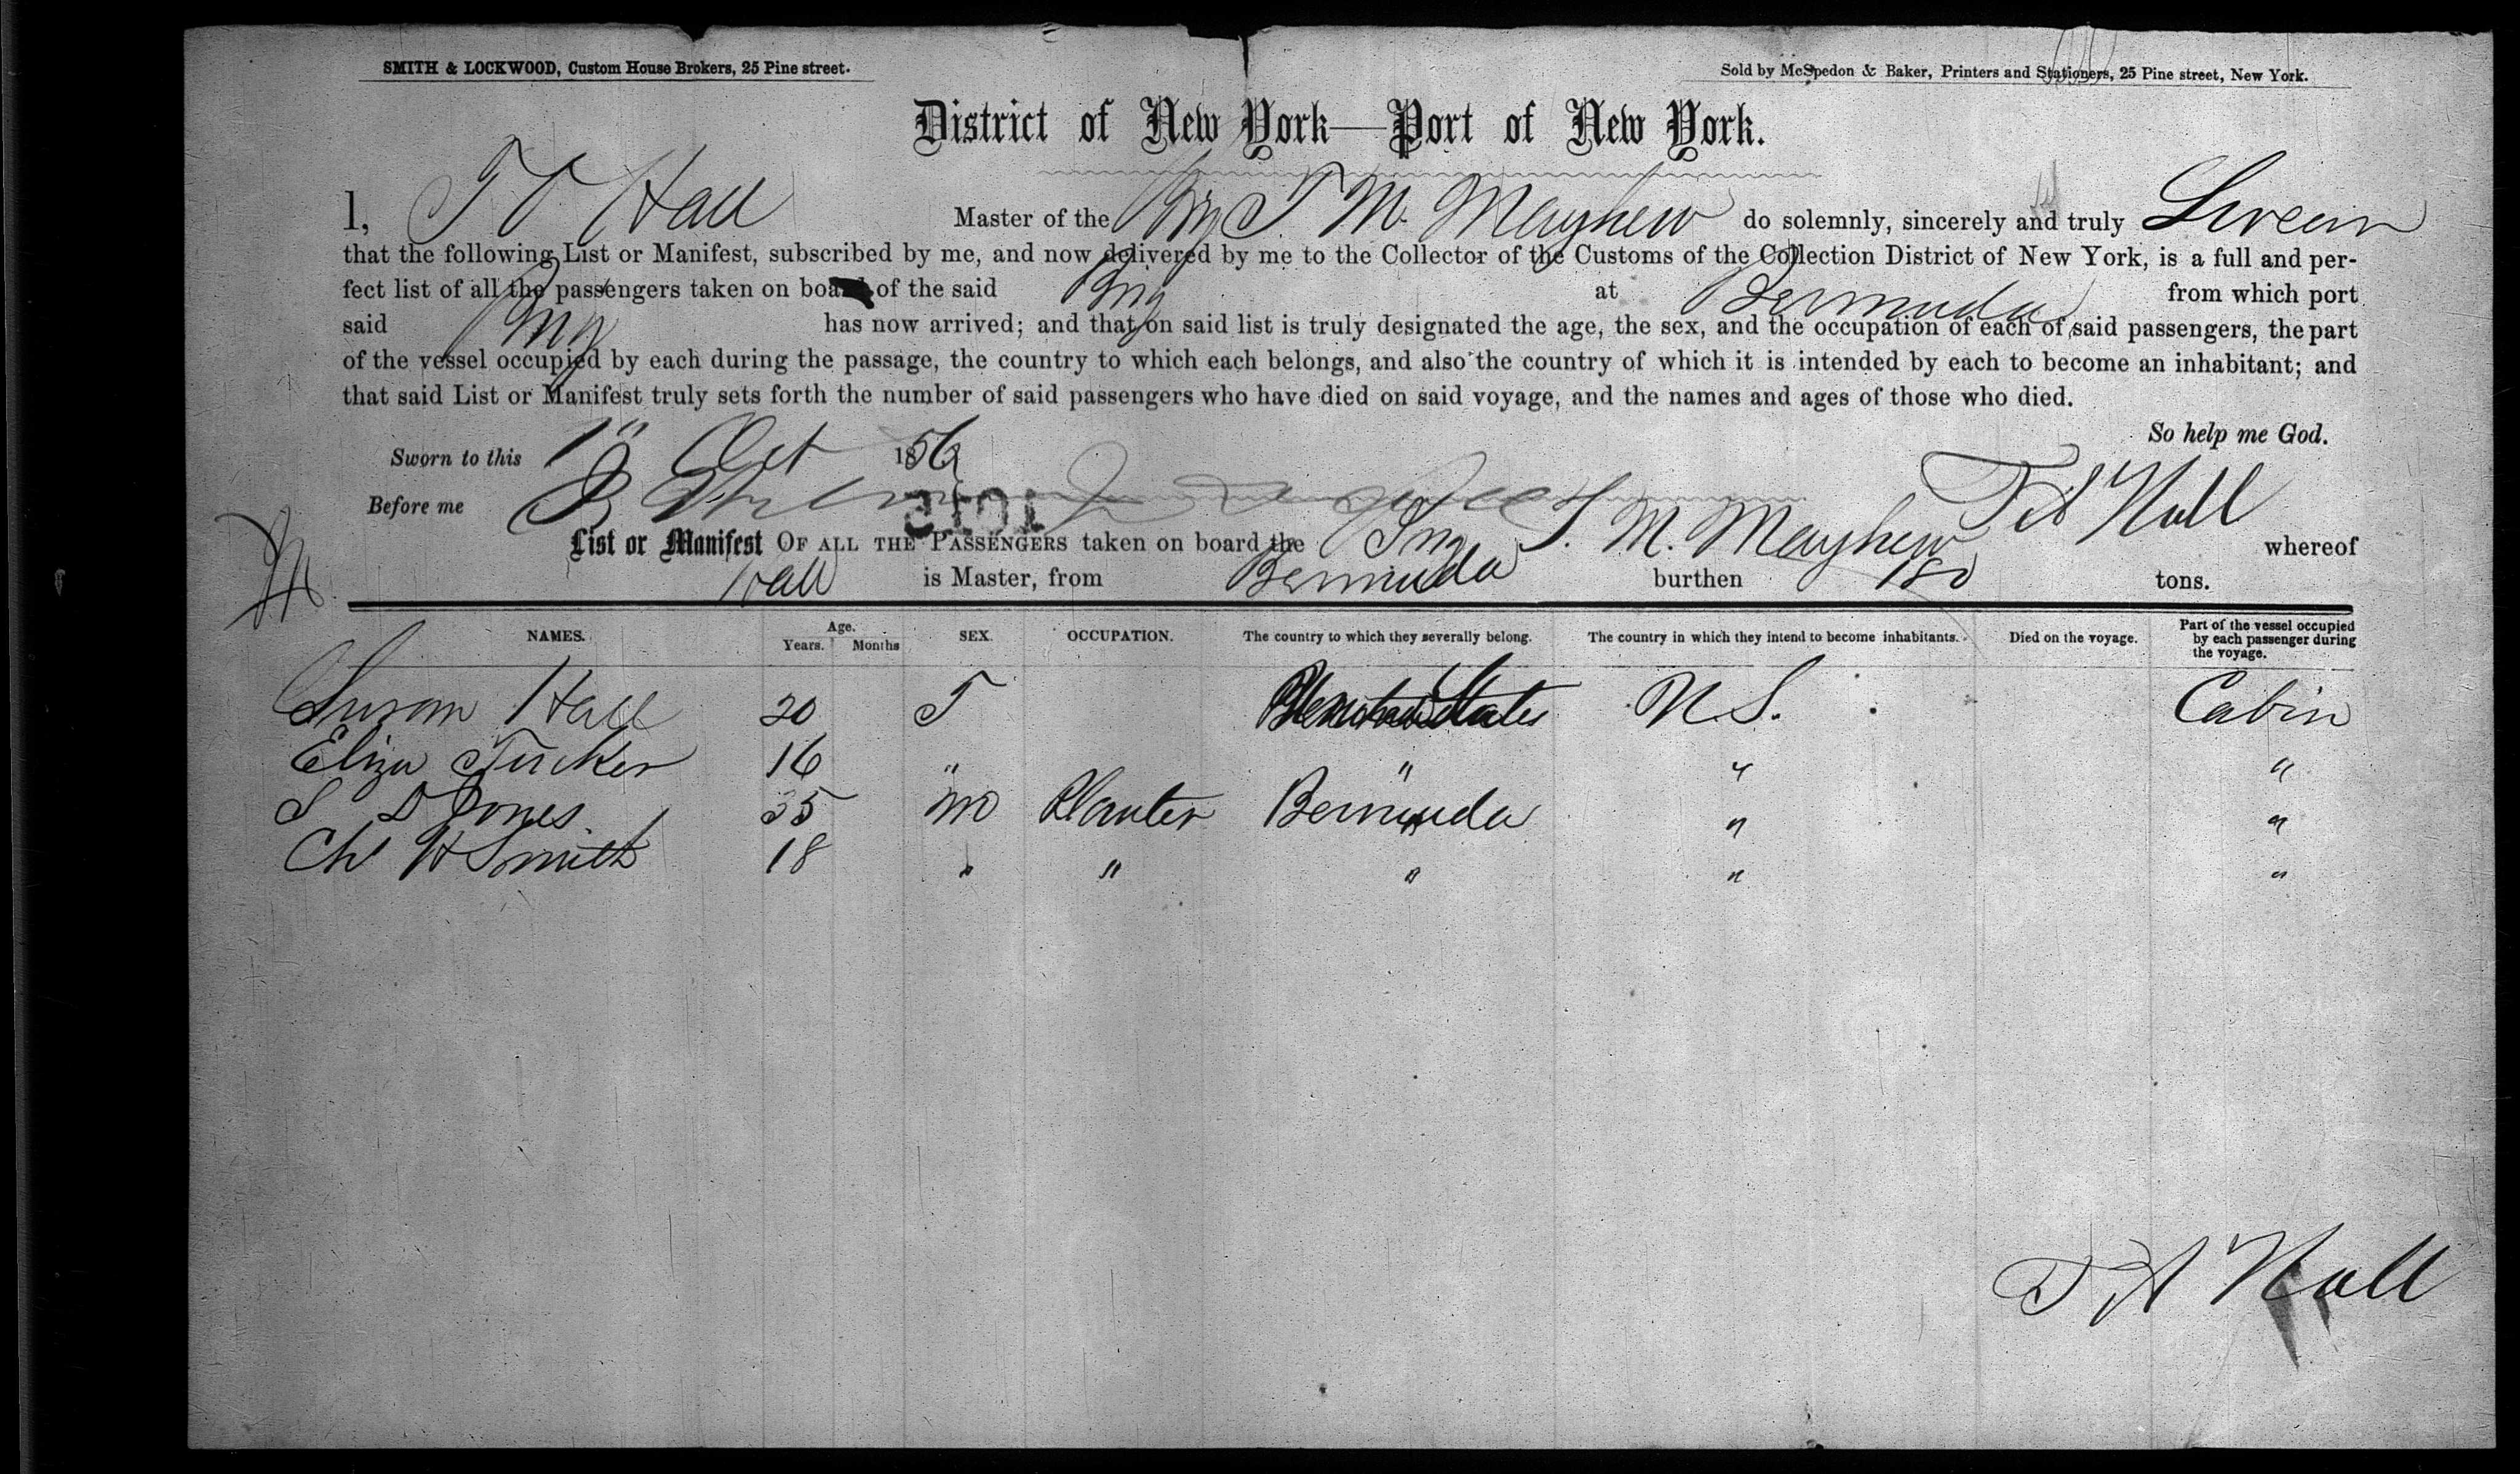 SMITH & LOCKWOOD, Custom House Brokers, 25 Pine street.
Sold by McSpedon & Baker, Printers and Stationers, 25 Pine street, New York.
District of New York—Port of New York.
I, Hall Master of the Brig T. M. Mayhew do solemnly, sincerely and truly Swear
that the following List or Manifest, subscribed by me, and now delivered by me to the Collector of the Customs of the Collection District of New York, is a full and per-
fect list of all the passengers taken on board of the said Brig at Bermuda from which port
said Brig has now arrived; and that on said list is truly designated the age, the sex, and the occupation of each of said passengers, the part
of the vessel occupied by each during the passage, the country to which each belongs, and also the country of which it is intended by each to become an inhabitant; and
that said List or Manifest truly sets forth the number of said passengers who have died on said voyage, and the names and ages of those who died.
So help me God.
Sworn to this 1" Oct 1856
Before me T A Hall
List or Manifest OF ALL THE PASSENGERS taken on board the Brig T. M. Mayhew whereof
Hall is Master, from Bermuda burthen 180 tons.
NAMES. Age. Years. Months SEX. OCCUPATION. The country to which they severally belong. The country in which they intend to become inhabitants. Died on the voyage. Part of the vessel occupied by each passenger during the voyage.
Susan Hall 20 F States U S. Cabin
Eliza Tucker 16 " " " "
S D Jones 35 M Planter Bermuda " "
Chs H Smith 18 " " " " "
T A Hall